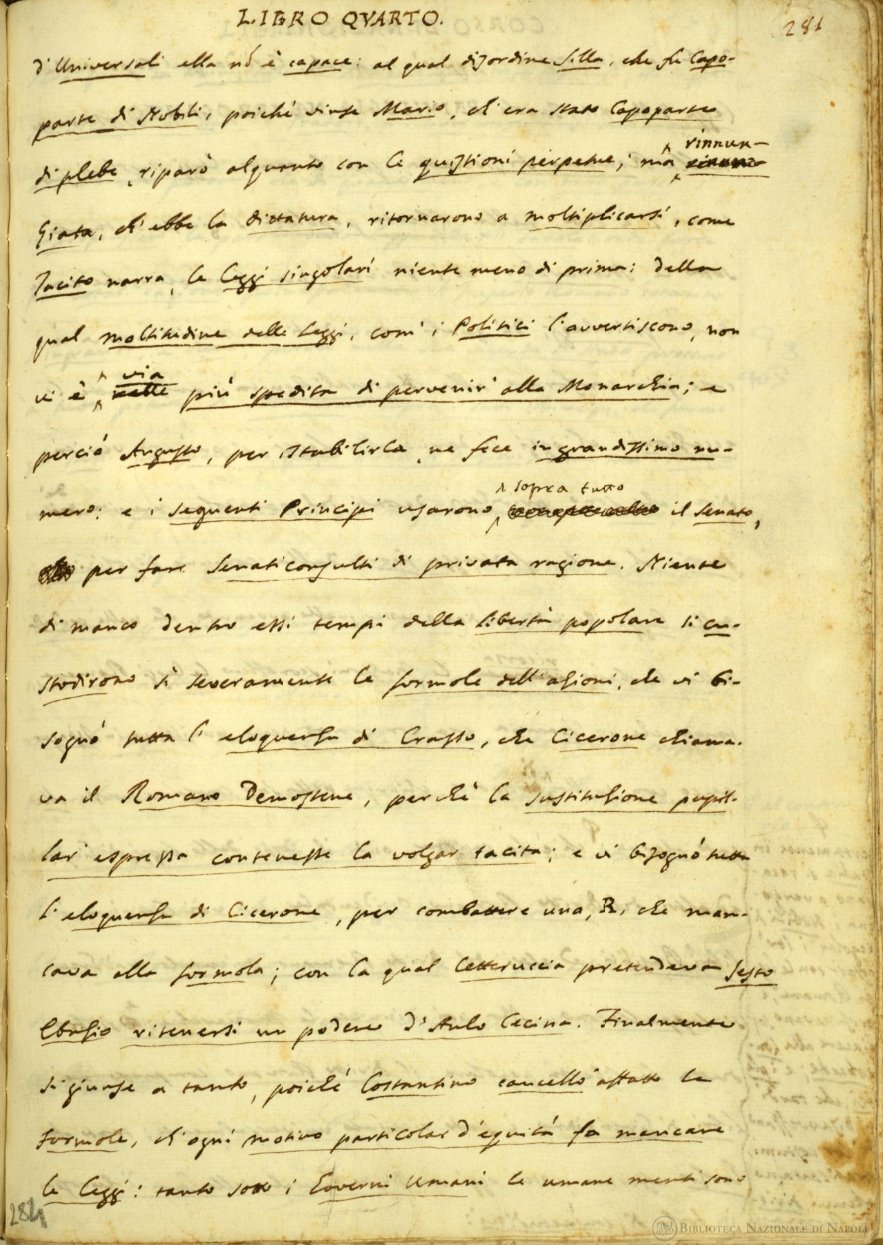 LIBRO QVARTO.
281
d'Universali ella nõ è capace: al qual disordine Silla, che fu Capo-
parte di Nobili, poichè vinse Mario, ch'era stato Capoparte
di plebe, riparò alquanto con le quistioni perpetue; ma rinnun-
ziata, ch'ebbe la Dittatura, ritornarono a moltiplicarsi, come
Tacito narra, le Leggi singolari niente meno di prima: della
qual moltitudine delle Leggi, com'i Politici l'avvertiscono, non
vi è via più spedita di pervenir'alla Monarchia; e
perciò Augusto, per istabilirla, ne fece in grandissimo nu-
mero: e i seguenti Principi usarono sopra tutto il Senato,
per fare Senaticonsulti di privata ragione. Niente
di manco dentro essi tempi della libertà popolare si cu-
stodirono sì severamente le formole dell'azioni, che vi bi-
sognò tutta l'eloquenza di Crasso, che Cicerone chiama-
va il Romano Demostene, perchè la sustituzione pupil-
lar'espressa contenesse la volgar tacita; e vi bisognò tutta
l'eloquenza di Cicerone, per combattere una, R, che man-
cava alla formola; con la qual letteruccia pretendeva Sesto
Ebuzio ritenersi un podere d'Aulo Cecina. Finalmente
si giunse a tanto, poichè Costantino cancellò affatto le
formole, ch'ogni motivo particolar d'equità fa mancare
le Leggi: tanto sotto i Governi Umani le umane menti sono
284
BIBLIOTECA NAZIONALE DI NAPOLI